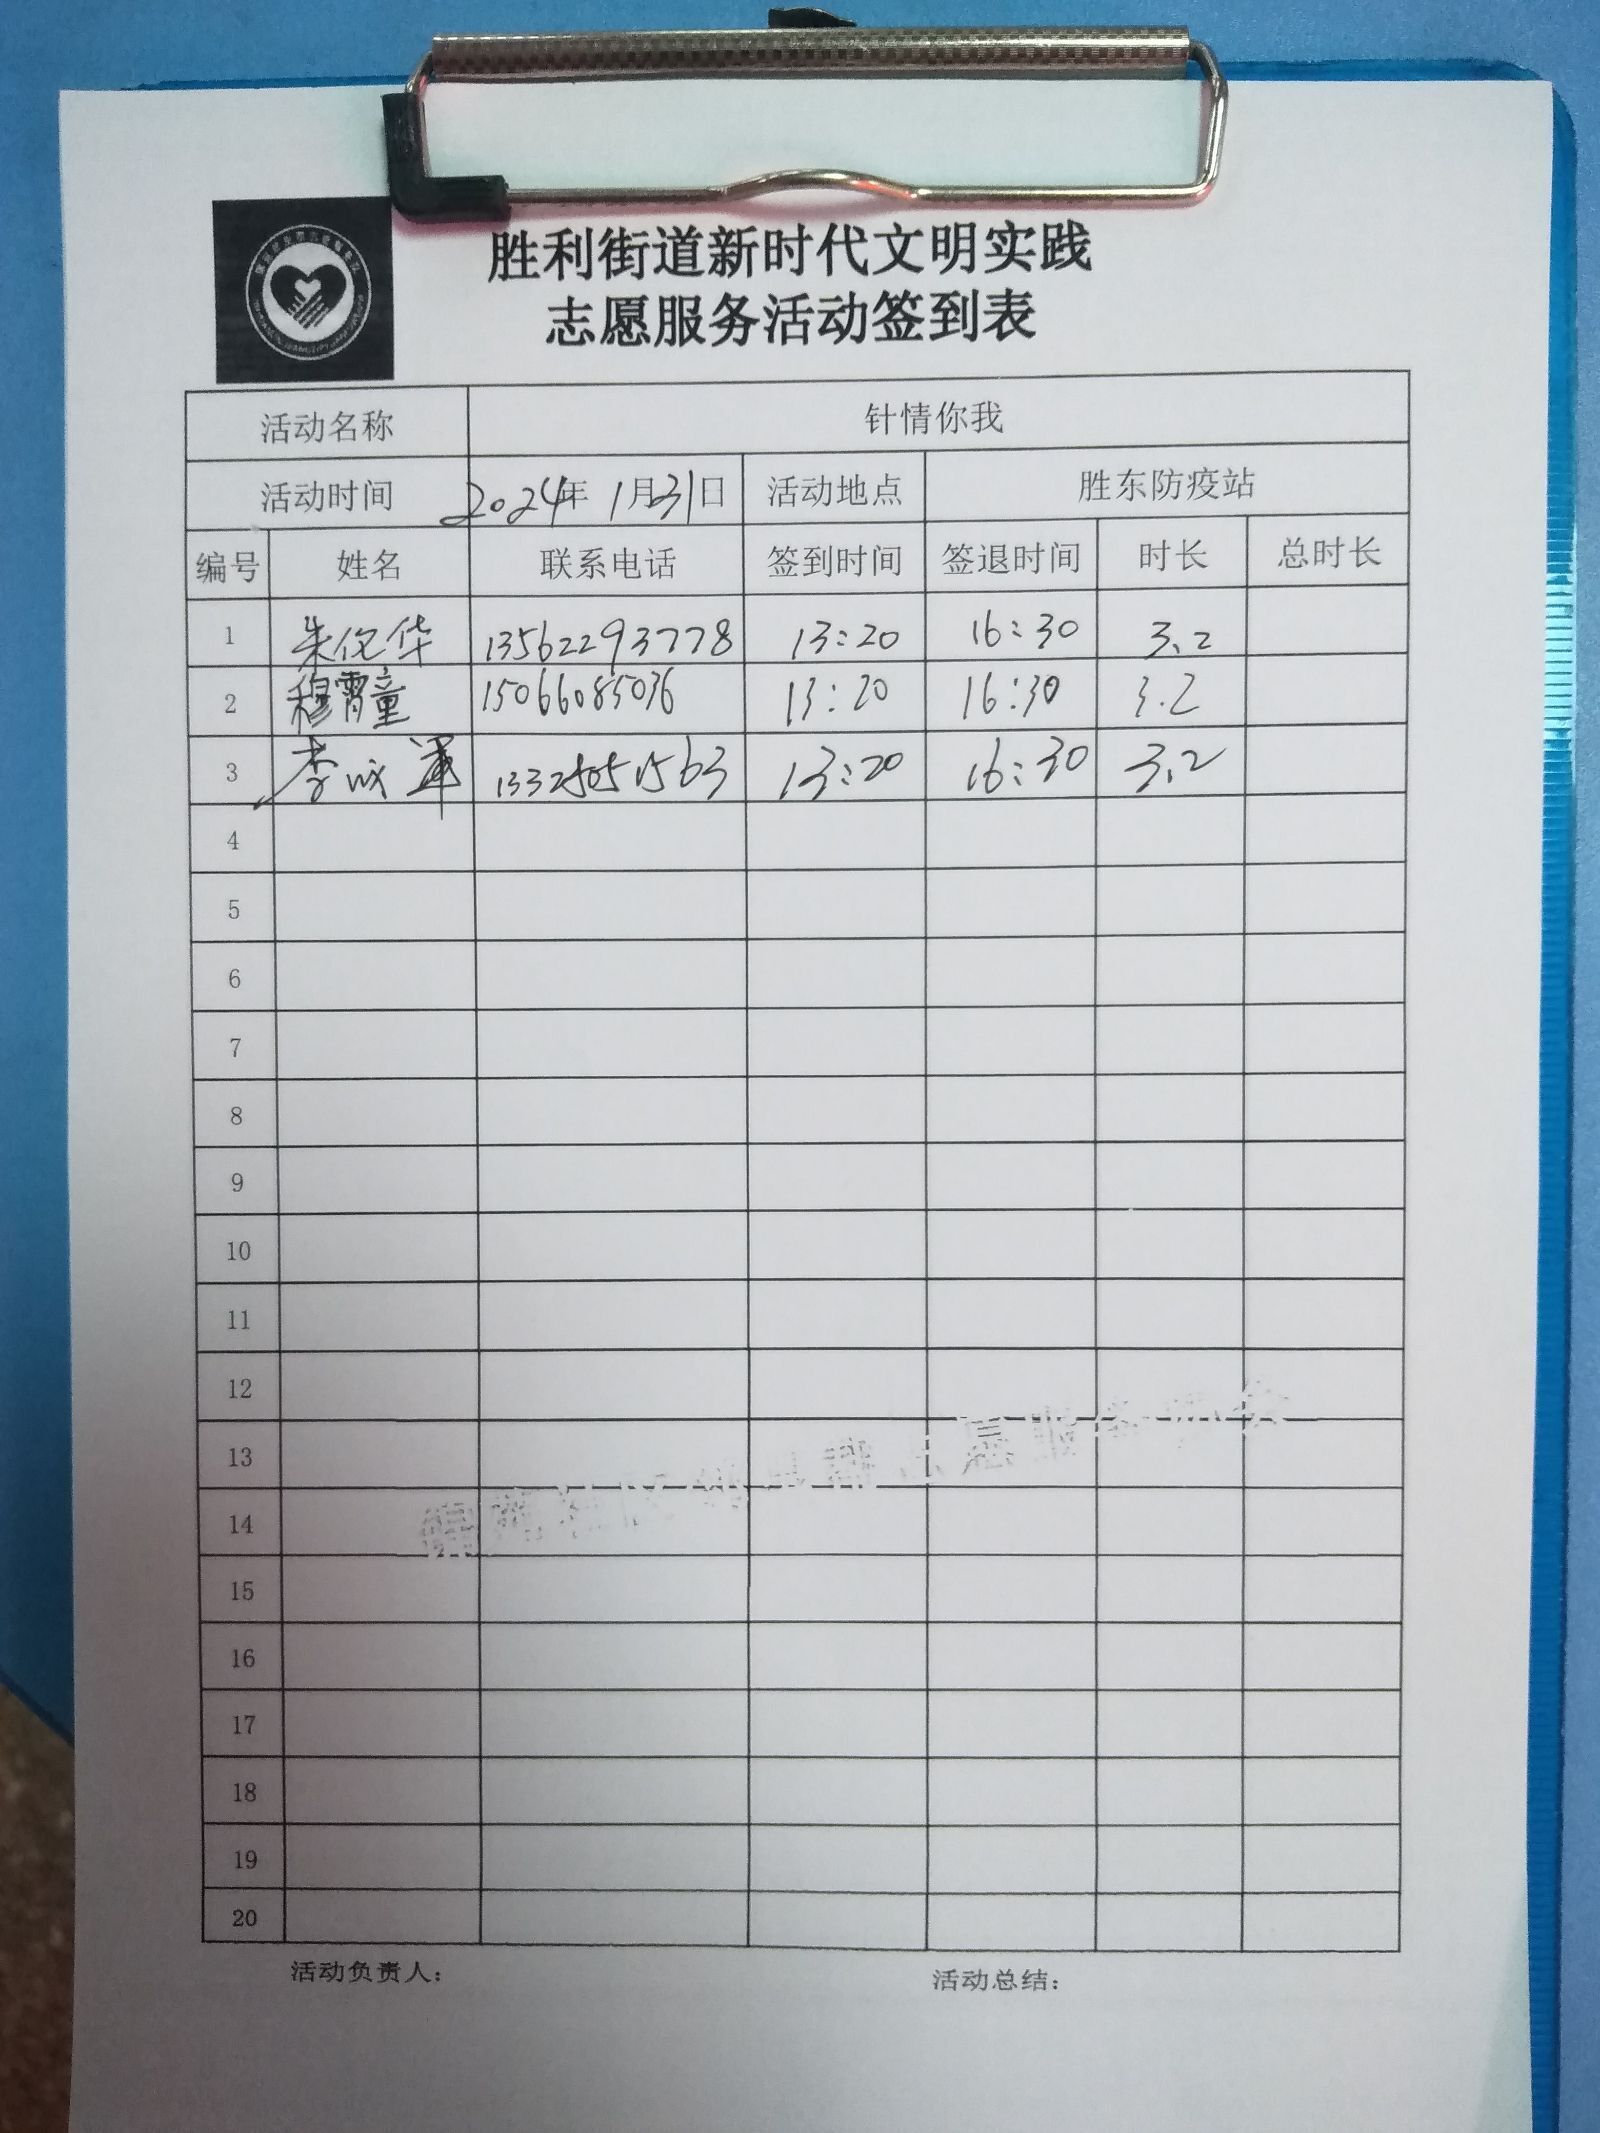 胜利街道新时代文明实践
志愿服务活动签到表
活动名称 针情你我
活动时间 2024年 1月31日 活动地点 胜东防疫站
编号 姓名 联系电话 签到时间 签退时间 时长 总时长
1 朱 华 13562293778 13:20 16:30 3.2
2 穆霄童 15066085036 13:20 16:30 3.2
3 李 13:20 16:30 3.2
4
5
6
7
8
9
10
11
12
13
14
15
16
17
18
19
20
活动负责人: 活动总结: